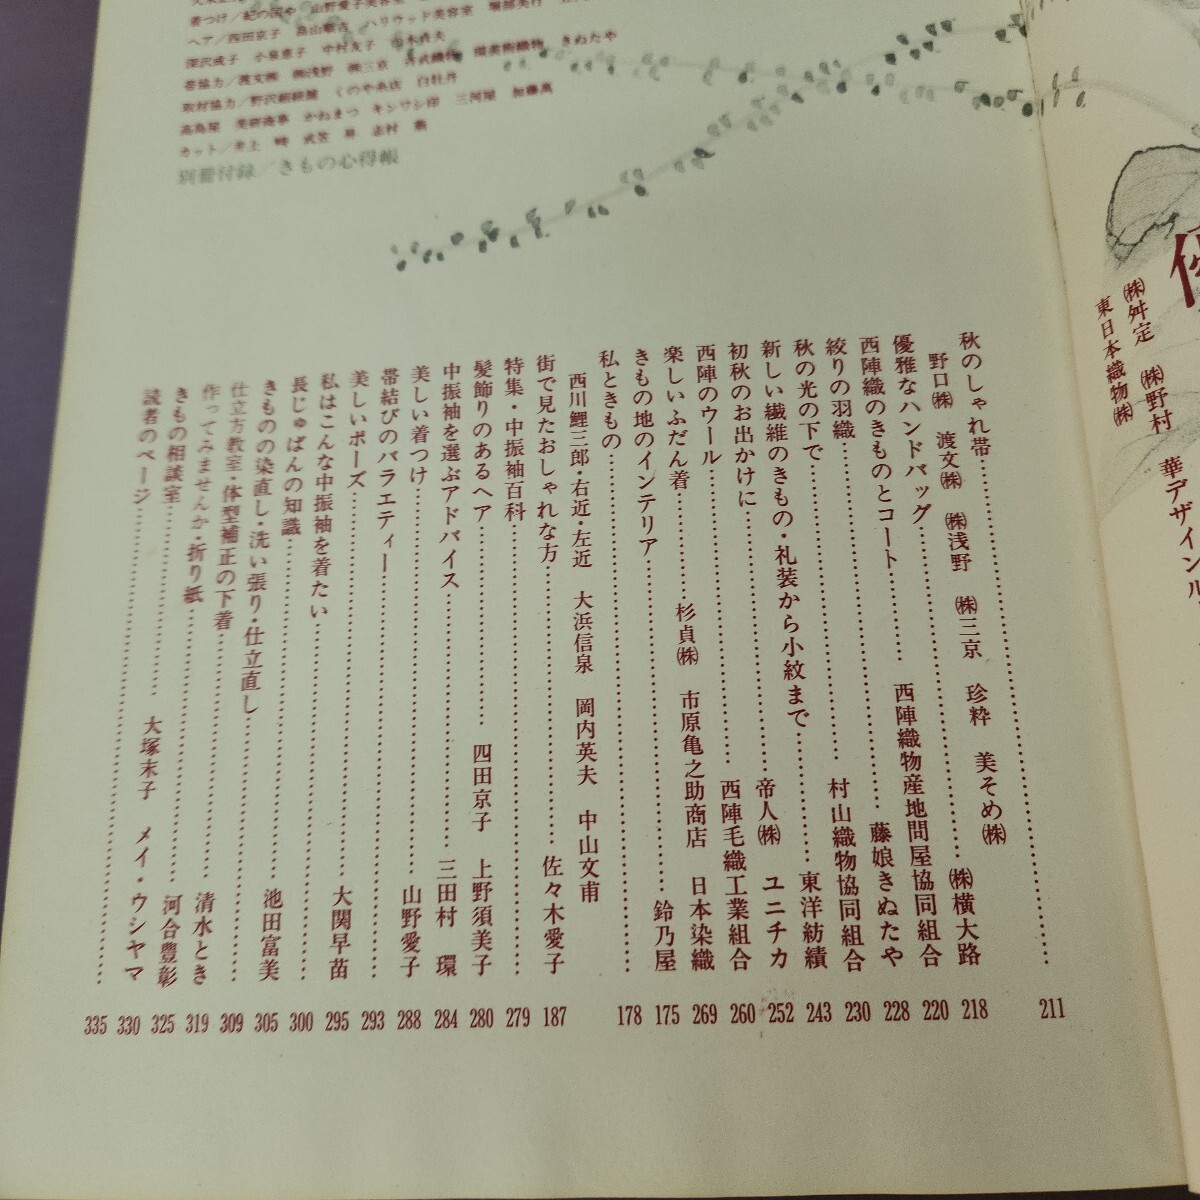 着つけ/紀の国や 山野愛子美容室
ヘア/四田京子 ハリウッド美容室
深沢成子 小泉恵子 中村友子
帯協力/渡文㈱ ㈱浅野 ㈱三京
きぬたや
取材協力/野沢組 くのや糸店 白牡丹
高島屋 美研商事 かねまつ キンワシ印 三河屋 加藤萬
カット/井上 武笠昇 志村
別冊付録/きもの心得帳
㈱舛定 ㈱野村
東日本織物㈱
華デザインル
秋のしゃれ帯…… 211
野口㈱ 渡文㈱ ㈱浅野 ㈱三京 珍粋 美そめ㈱
優雅なハンドバッグ……㈱横大路 218
西陣織のきものとコート……西陣織物産地問屋協同組合 220
絞りの羽織……藤娘きぬたや 228
秋の光の下で……村山織物協同組合 230
新しい繊維のきもの・礼装から小紋まで……東洋紡績 243
帝人㈱ ユニチカ
初秋のお出かけに…… 252
西陣のウール……西陣毛織工業組合 260
楽しいふだん着……杉貞㈱ 市原亀之助商店 日本染織 269
きもの地のインテリア……鈴乃屋 175
私ときもの…… 178
西川鯉三郎・右近・左近 大浜信泉 岡内英夫 中山文甫
街で見たおしゃれな方……佐々木愛子 187
特集・中振袖百科…… 279
髪飾りのあるヘア……四田京子 上野須美子 280
中振袖を選ぶアドバイス……三田村 環 284
美しい着つけ……山野愛子 288
帯結びのバラエティー…… 293
美しいポーズ……大関早苗 295
私はこんな中振袖を着たい…… 300
長じゅばんの知識……池田富美 305
きものの染直し・洗い張り・仕立直し…… 309
仕立方教室・体型補正の下着……清水とき 319
作ってみませんか・折り紙……河合豊彰 325
きもの相談室……大塚末子 メイ・ウシヤマ 330
読者のページ…… 335